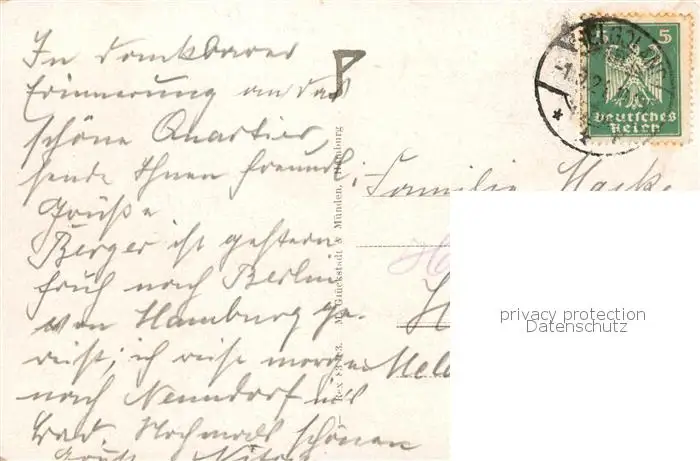 In dankbarer
Erinnerung an das
schöne Quartier,
sende Ihnen freundl.
Grüße
Berger ist gestern
früh nach Berlin
von Hamburg ge-
reist; ich reise morgen
nach Nenndorf ins
Bad. Nochmals schönen
Gruß
Rex M. Glückstadt & Münden, Hamburg
5
Deutsches
Reich
Familie
privacy protection
Datenschutz